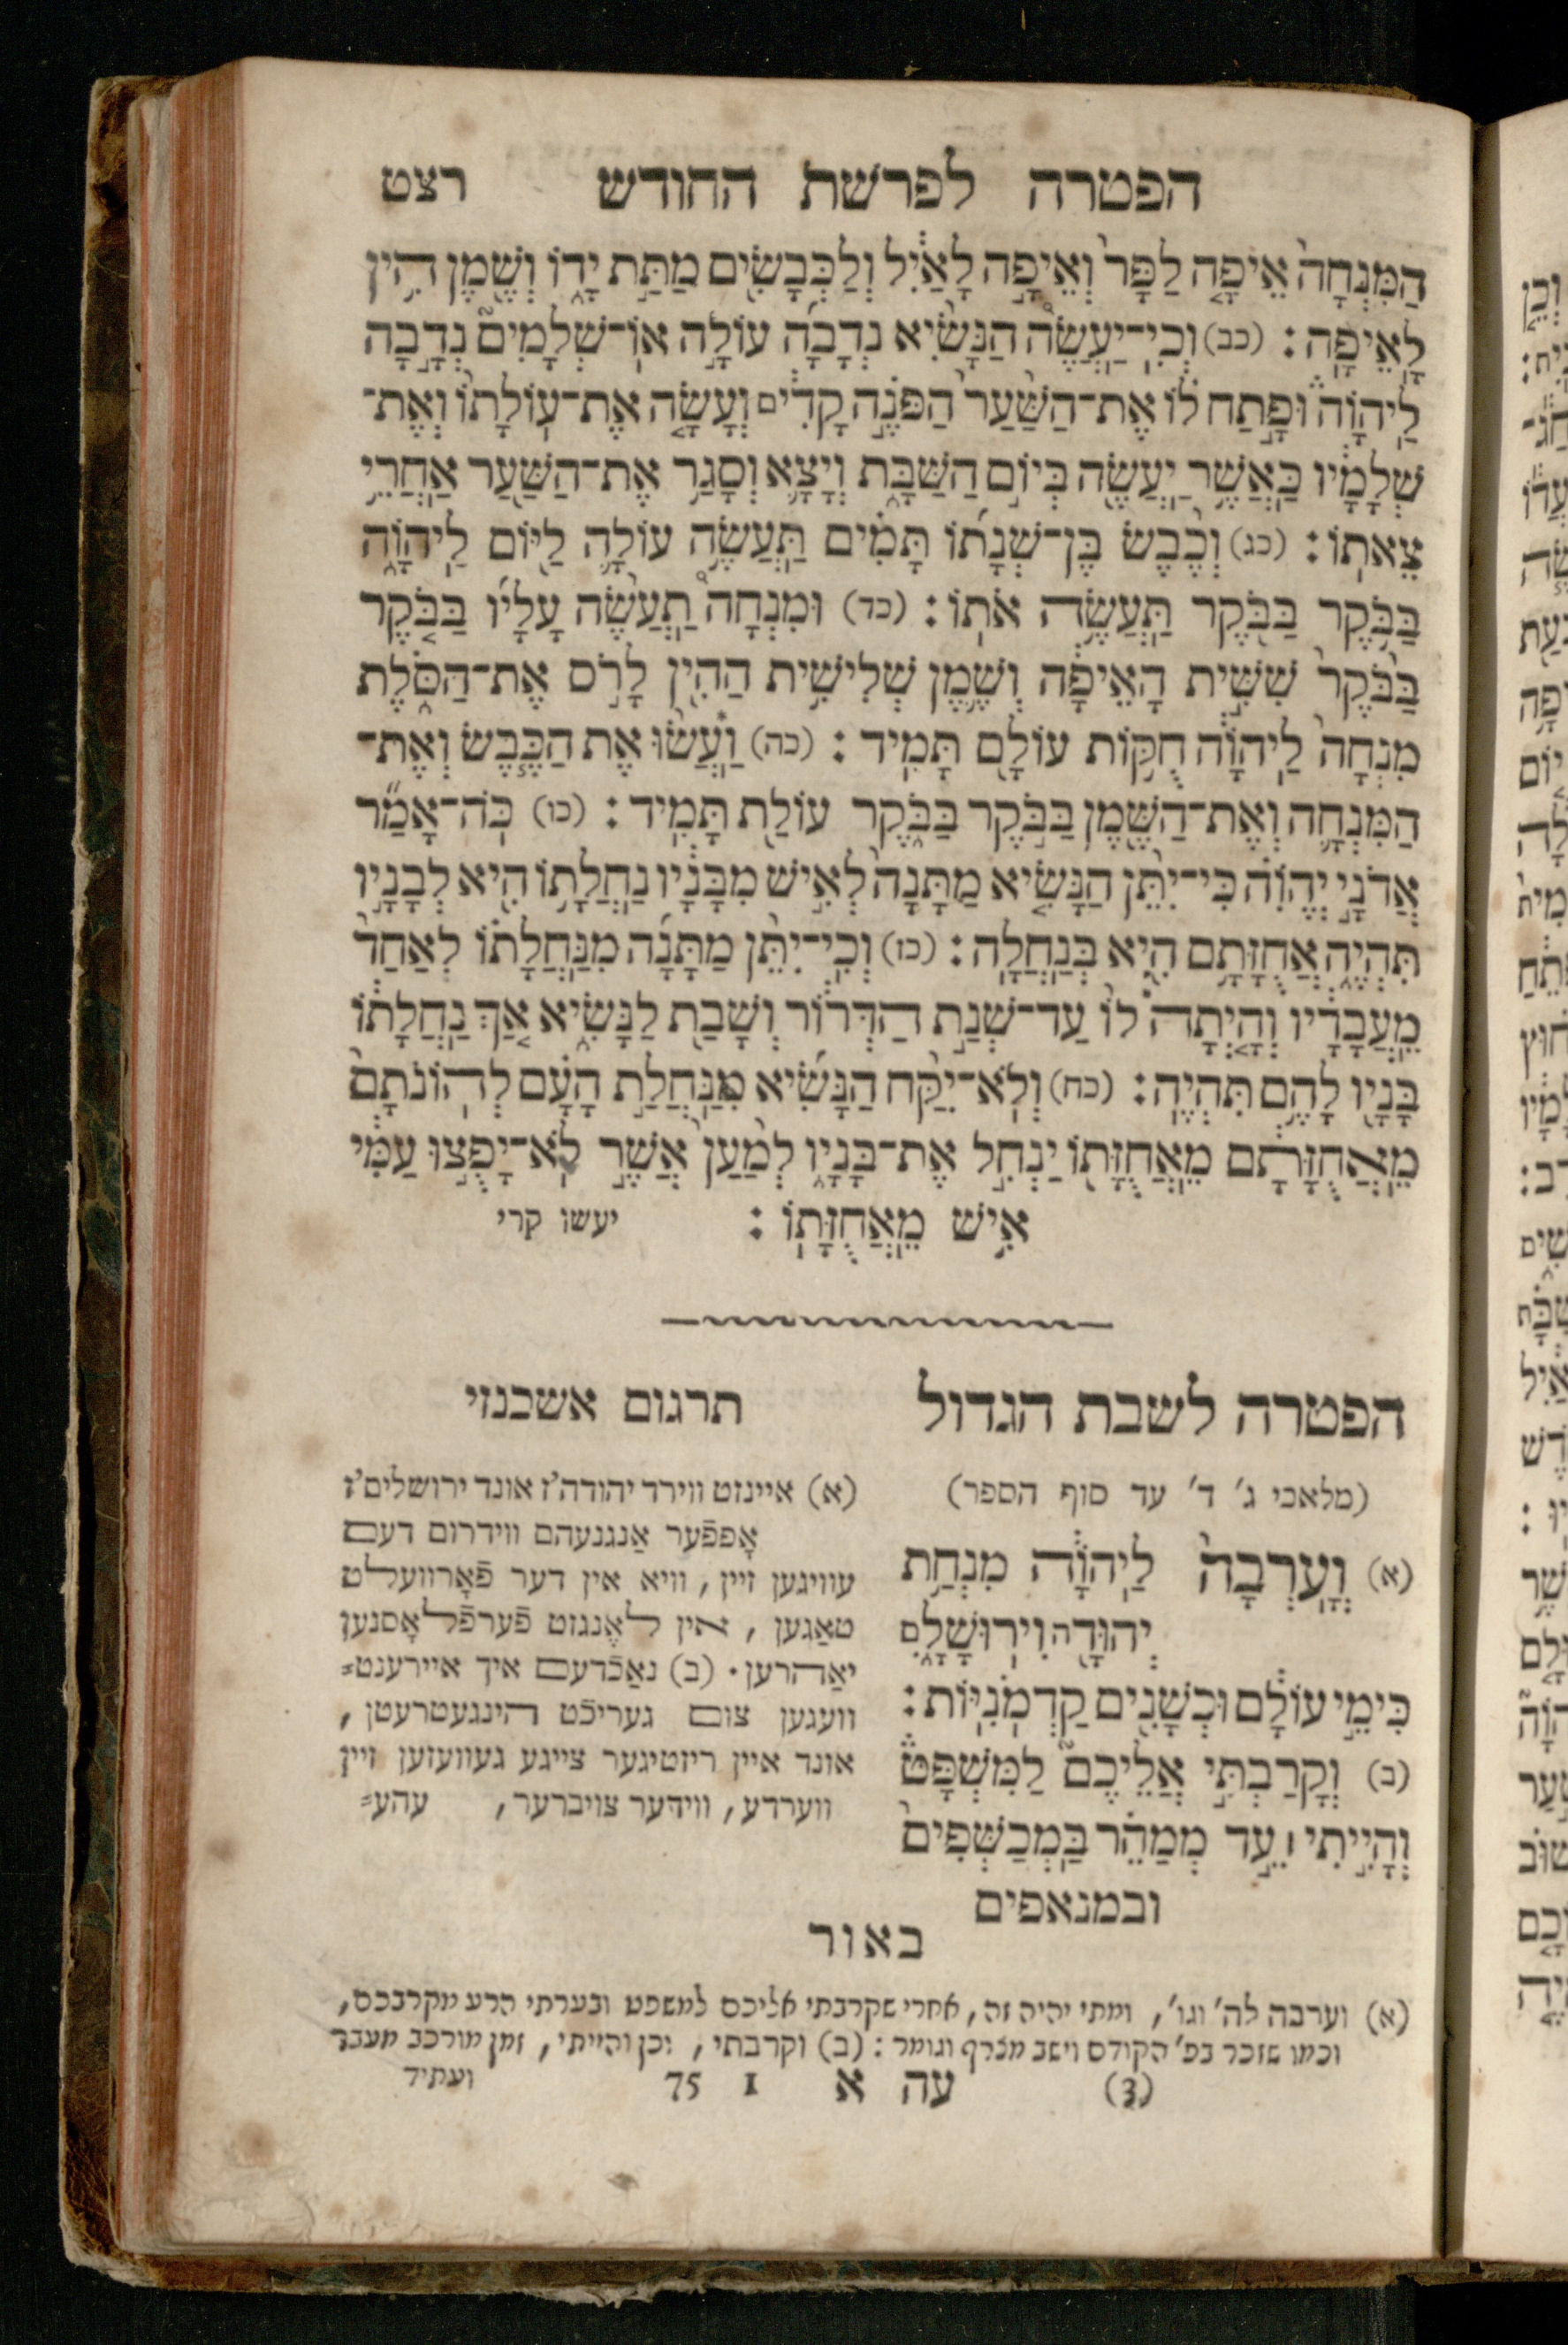 הפטרה לפרשת החודש רצט
הַמִּנְחָה אֵיפָה לַפָּר וְאֵיפָה לָאַיִל וְלַכְּבָשִׂים מַתַּת יָדוֹ וְשֶׁמֶן הִין
לָאֵיפָה : (כב) וְכִי־יַעֲשֶׂה הַנָּשִׂיא נְדָבָה עוֹלָה אוֹ־שְׁלָמִים נְדָבָה
לַיהוָה וּפָתַח לוֹ אֶת־הַשַּׁעַר הַפֹּנֶה קָדִים וְעָשָׂה אֶת־עוֹלָתוֹ וְאֶת־
שְׁלָמָיו כַּאֲשֶׁר יַעֲשֶׂה בְּיוֹם הַשַּׁבָּת וְיָצָא וְסָגַר אֶת־הַשַּׁעַר אַחֲרֵי
צֵאתוֹ : (כג) וְכֶבֶשׂ בֶּן־שְׁנָתוֹ תָּמִים תַּעֲשֶׂה עוֹלָה לַיּוֹם לַיהוָה
בַּבֹּקֶר בַּבֹּקֶר תַּעֲשֶׂה אֹתוֹ : (כד) וּמִנְחָה תַעֲשֶׂה עָלָיו בַּבֹּקֶר
בַּבֹּקֶר שִׁשִּׁית הָאֵיפָה וְשֶׁמֶן שְׁלִישִׁית הַהִין לָרֹס אֶת־הַסֹּלֶת
מִנְחָה לַיהוָה חֻקּוֹת עוֹלָם תָּמִיד : (כה) וַעֲשׂוּ אֶת הַכֶּבֶשׂ וְאֶת־
הַמִּנְחָה וְאֶת־הַשֶּׁמֶן בַּבֹּקֶר בַּבֹּקֶר עוֹלַת תָּמִיד : (כו) כֹּה־אָמַר
אֲדֹנָי יְהֶוִה כִּי־יִתֵּן הַנָּשִׂיא מַתָּנָה לְאִישׁ מִבָּנָיו נַחֲלָתוֹ הִיא לְבָנָיו
תִּהְיֶה אֲחֻזָּתָם הִיא בְּנַחֲלָה : (כז) וְכִי־יִתֵּן מַתָּנָה מִנַּחֲלָתוֹ לְאַחַד
מֵעֲבָדָיו וְהָיְתָה לּוֹ עַד־שְׁנַת הַדְּרוֹר וְשָׁבַת לַנָּשִׂיא אַךְ נַחֲלָתוֹ
בָּנָיו לָהֶם תִּהְיֶה : (כח) וְלֹא־יִקַּח הַנָּשִׂיא מִנַּחֲלַת הָעָם לְהוֹנֹתָם
מֵאֲחֻזָּתָם מֵאֲחֻזָּתוֹ יַנְחִל אֶת־בָּנָיו לְמַעַן אֲשֶׁר לֹא־יָפֻצוּ עַמִּי
אִישׁ מֵאֲחֻזָּתוֹ : יעשו קרי
הפטרה לשבת הגדול
(מלאכי ג' ד' עד סוף הספר)
(א) וְעָרְבָה לַיהוָה מִנְחַת
יְהוּדָה וִירוּשָׁלִָם
כִּימֵי עוֹלָם וּכְשָׁנִים קַדְמֹנִיּוֹת :
(ב) וְקָרַבְתִּי אֲלֵיכֶם לַמִּשְׁפָּט
וְהָיִיתִי ׀ עֵד מְמַהֵר בַּמְכַשְּׁפִים
ובמנאפים
תרגום אשכנזי
(א) איינזט ווירד יהודה'ז אונד ירושלים'ז
אָפפֿער אַנגנעהם ווידרום דעם
עוויגען זיין, וויא אין דער פֿאָרוועלט
טאַגען, אין לאֶנגזט פֿערפֿלאָסנען
יאַהרען. (ב) נאַכֿדעם איך אייערענט=
וועגען צום געריכֿט הינגעטרעטן,
אונד איין ריזטיגער צייגע געוועזען זיין
ווערדע, ווידער צויברער, עהע=
באור
(א) וערבה לה' וגו', ומתי יהיה זה, אחרי שקרבתי אליכם למשפט ובערתי הרע מקרבכם,
וכמו שזכר בפ' הקודם וישב מצרף וגומר : (ב) וקרבתי, וכן והייתי, זמן מורכב מעבר
ועתיד
(ד) עה א 1 75